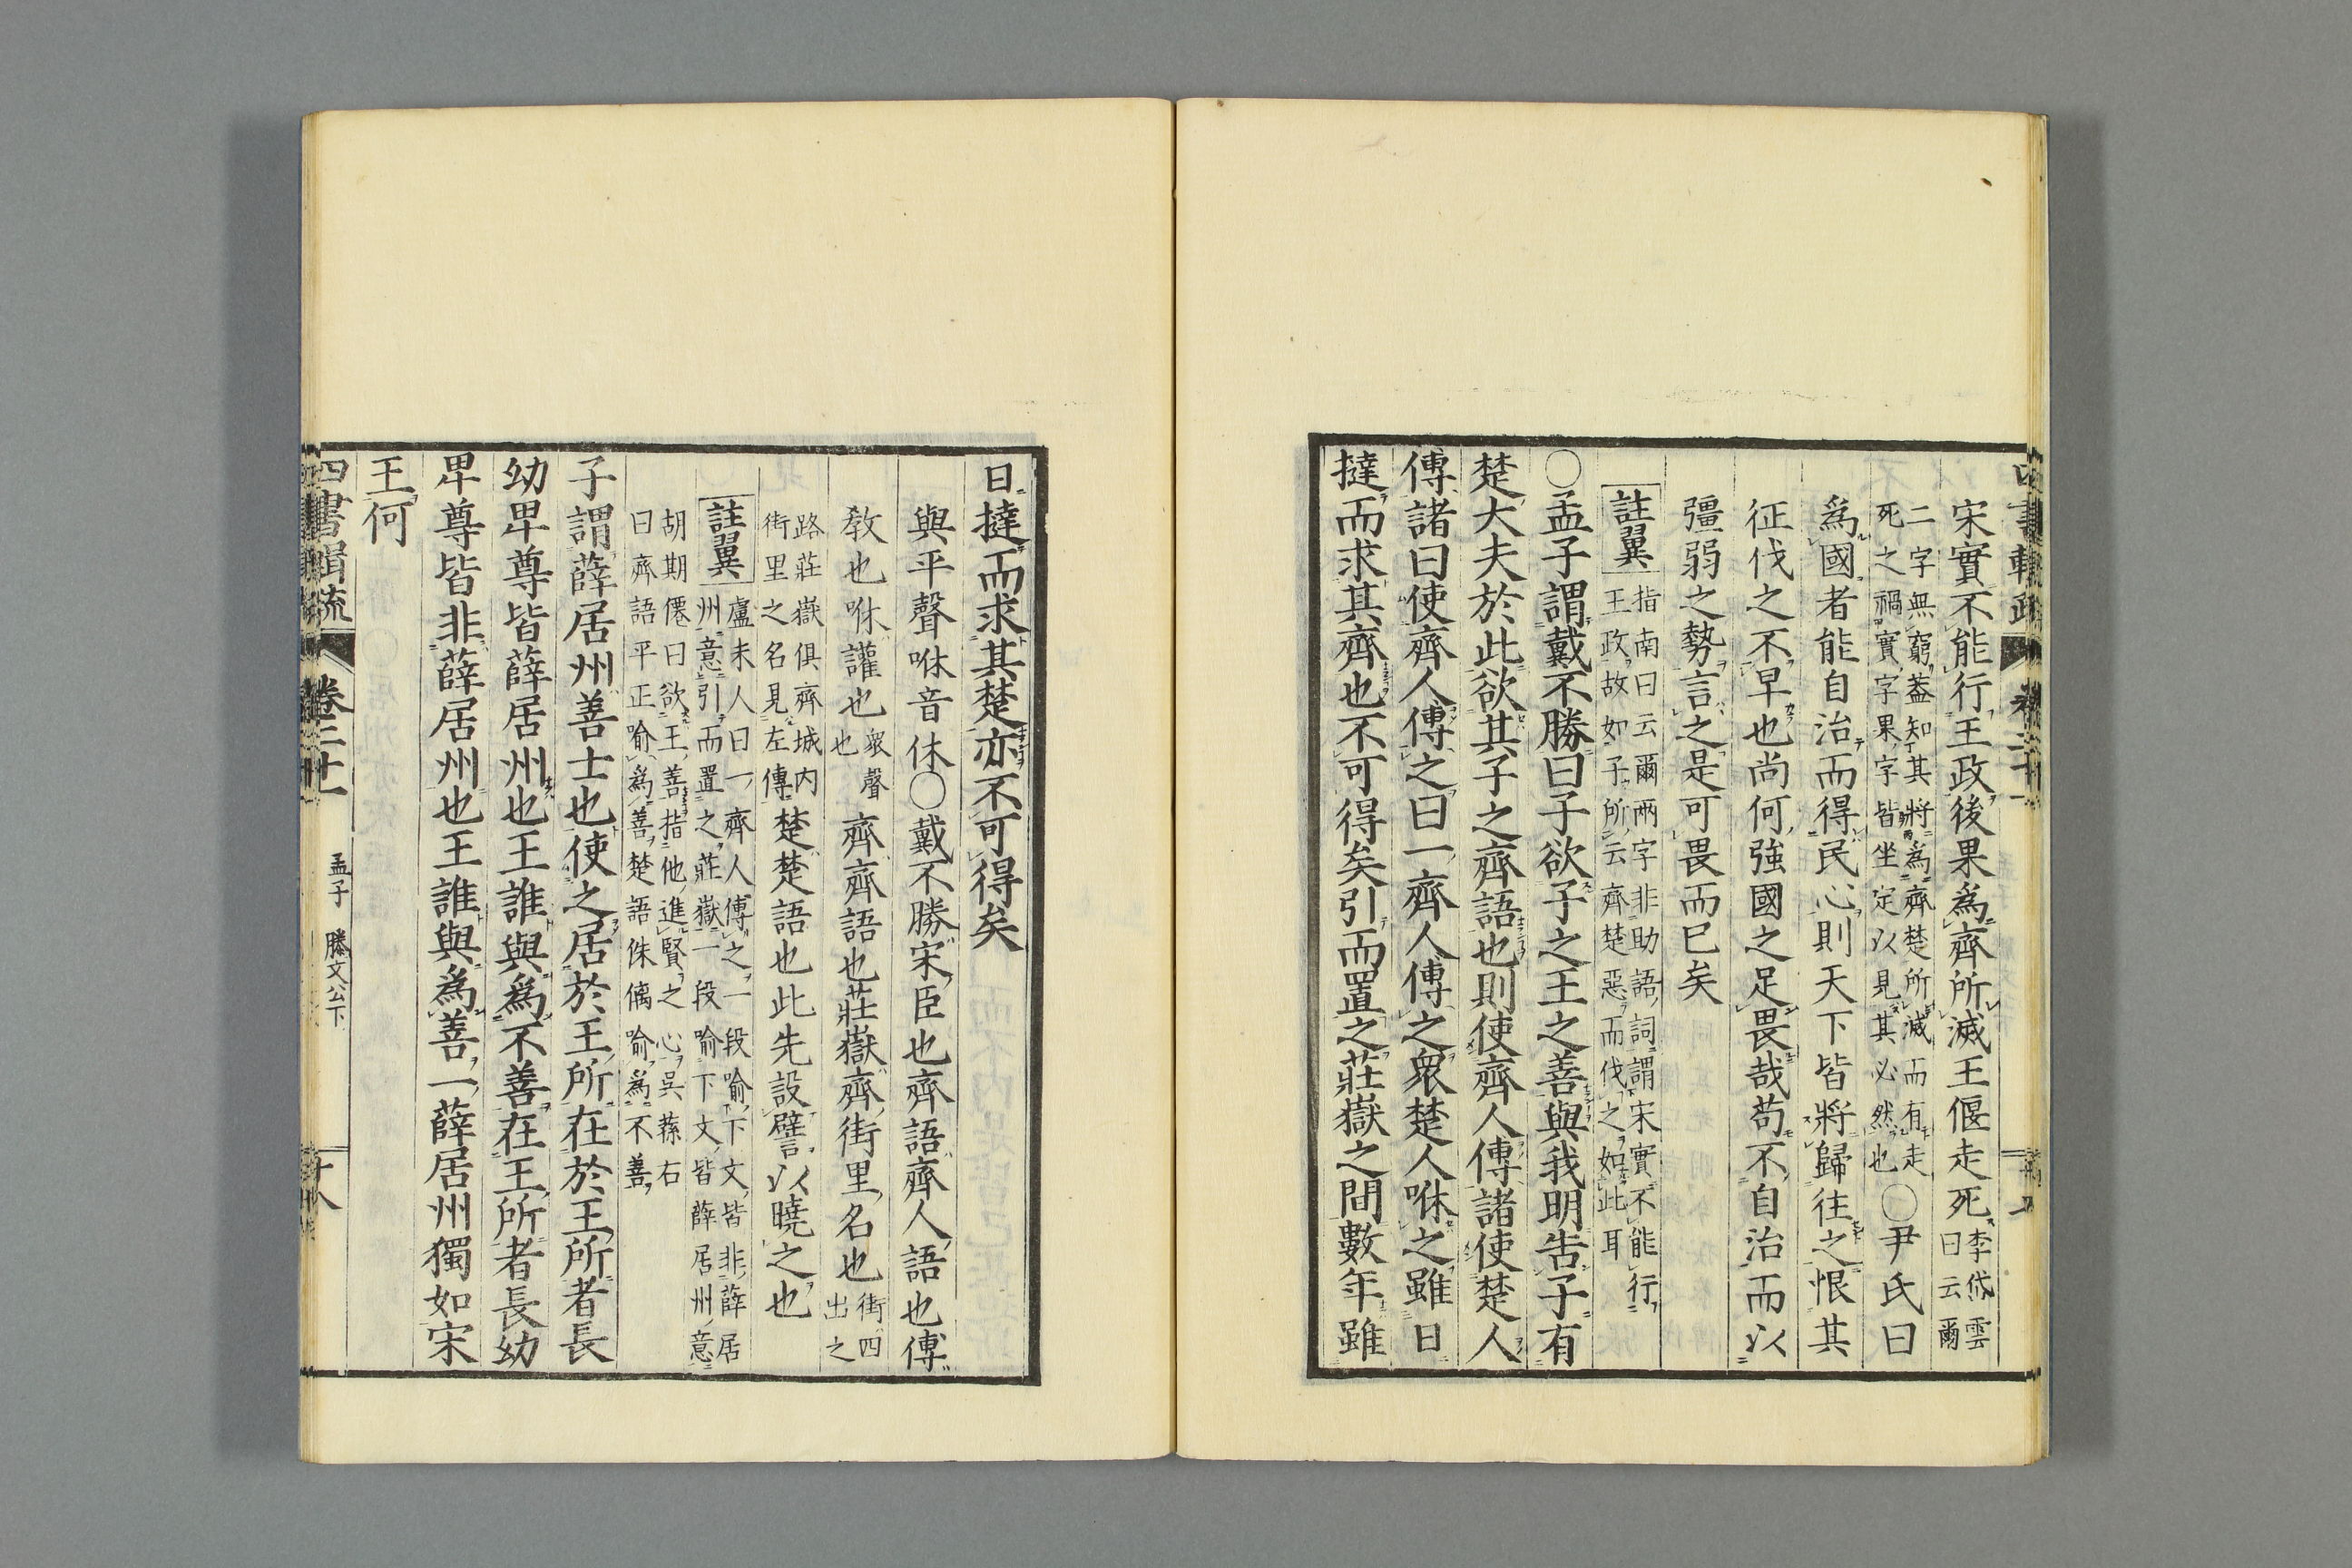 宋實不能行王政後果爲齊所滅王偃走死李岱雲曰云爾
二字無窮蓋知其將爲齊楚所滅而有走
死之禍實字果字皆坐定以見其必然也○尹氏曰
爲國者能自治而得民心則天下皆將歸往之恨其
征伐之不早也尚何強國之足畏哉苟不自治而以
彊弱之勢言之是可畏而已矣
註翼 指南曰云爾兩字非助語詞謂宋實不能行
王政故如子所云齊楚惡而伐之如此耳
○孟子謂戴不勝曰子欲子之王之善與我明告子有
楚大夫於此欲其子之齊語也則使齊人傅諸使楚人
傅諸曰使齊人傅之曰一齊人傅之衆楚人咻之雖日
撻而求其齊也不可得矣引而置之莊嶽之間數年雖
日撻而求其楚亦不可得矣
與平聲咻音休○戴不勝宋臣也齊語齊人語也傅
敎也咻讙也衆聲也齊齊語也莊嶽齊街里名也街四出之
路莊嶽俱齊城内
街里之名見左傳楚楚語也此先設譬以曉之也
註翼 盧未人曰一齊人傅之一段喻下文皆非薛居
州意引而置之莊嶽一段喻下文皆薛居州意
胡期僊曰欲王善指他進賢之心吳蓀右
曰齊語平正喻爲善楚語侏僪喻爲不善
子謂薛居州善士也使之居於王所在於王所者長
幼卑尊皆薛居州也王誰與爲不善在王所者長幼
卑尊皆非薛居州也王誰與爲善一薛居州獨如宋
王何
四書輯疏 卷二十一 孟子 滕文公下 十八